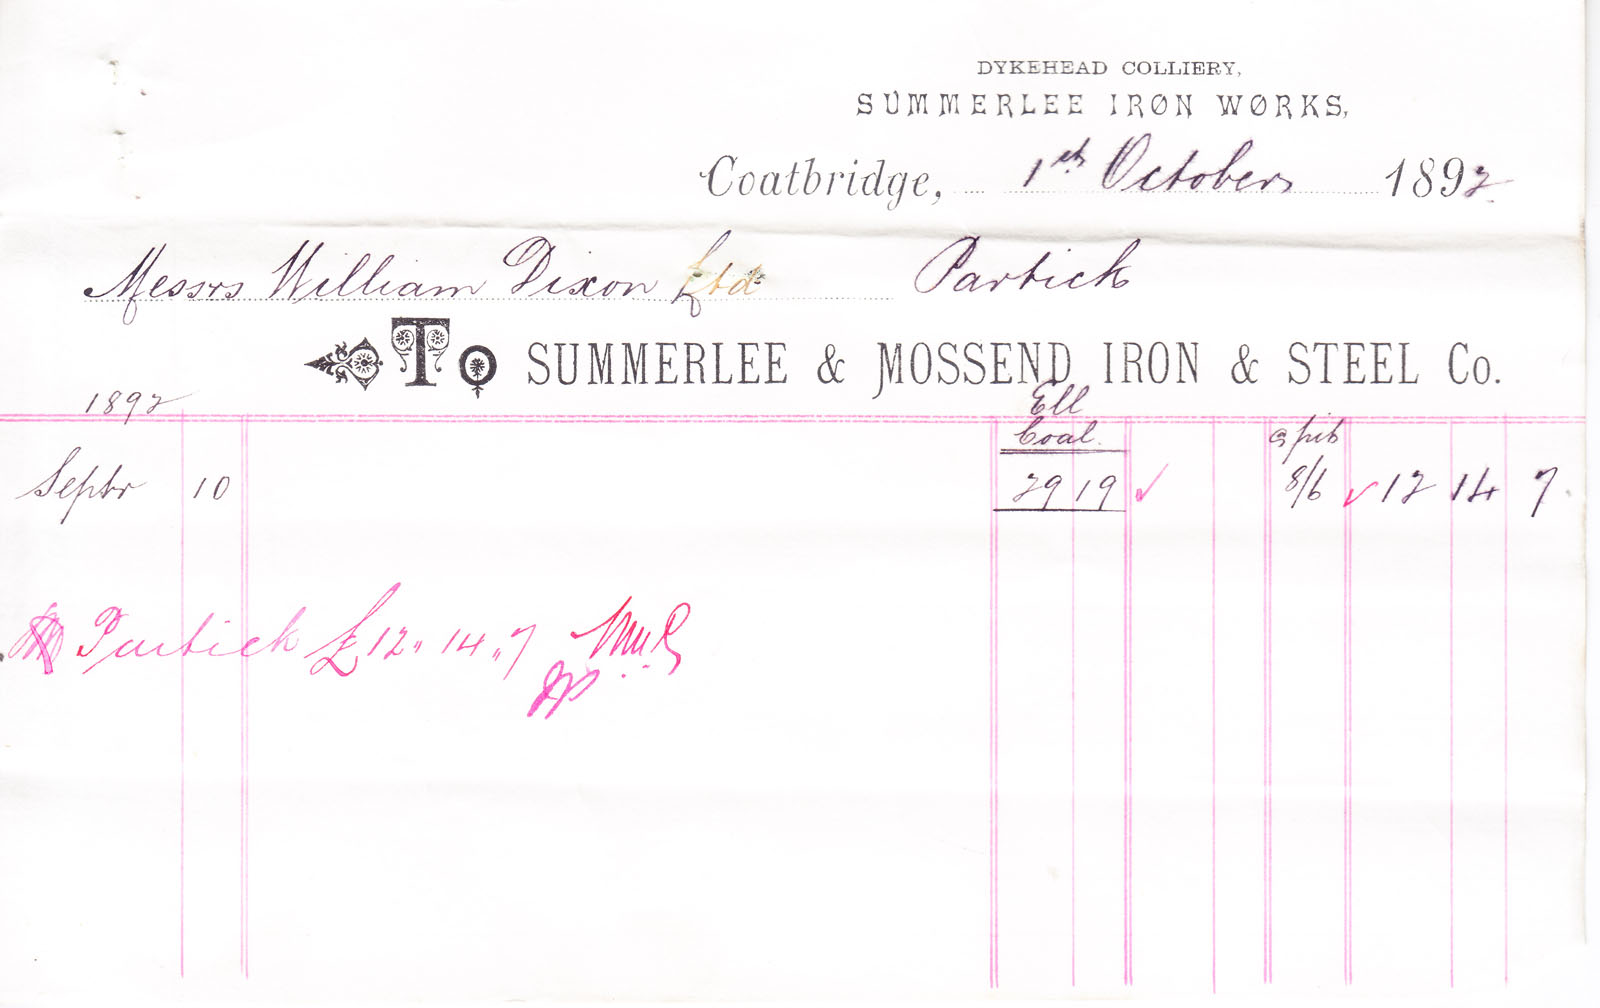 DYKEHEAD COLLIERY,
SUMMERLEE IRON WORKS,
Coatbridge, 1st October 1892
Messrs William Dixon Ltd Partick
To SUMMERLEE & MOSSEND IRON & STEEL Co.
1892
Ell
Coal.
Septr 10 29 19 ✓ 8/6 ✓ 12 14 7.
Partick £12 " 14 " 7